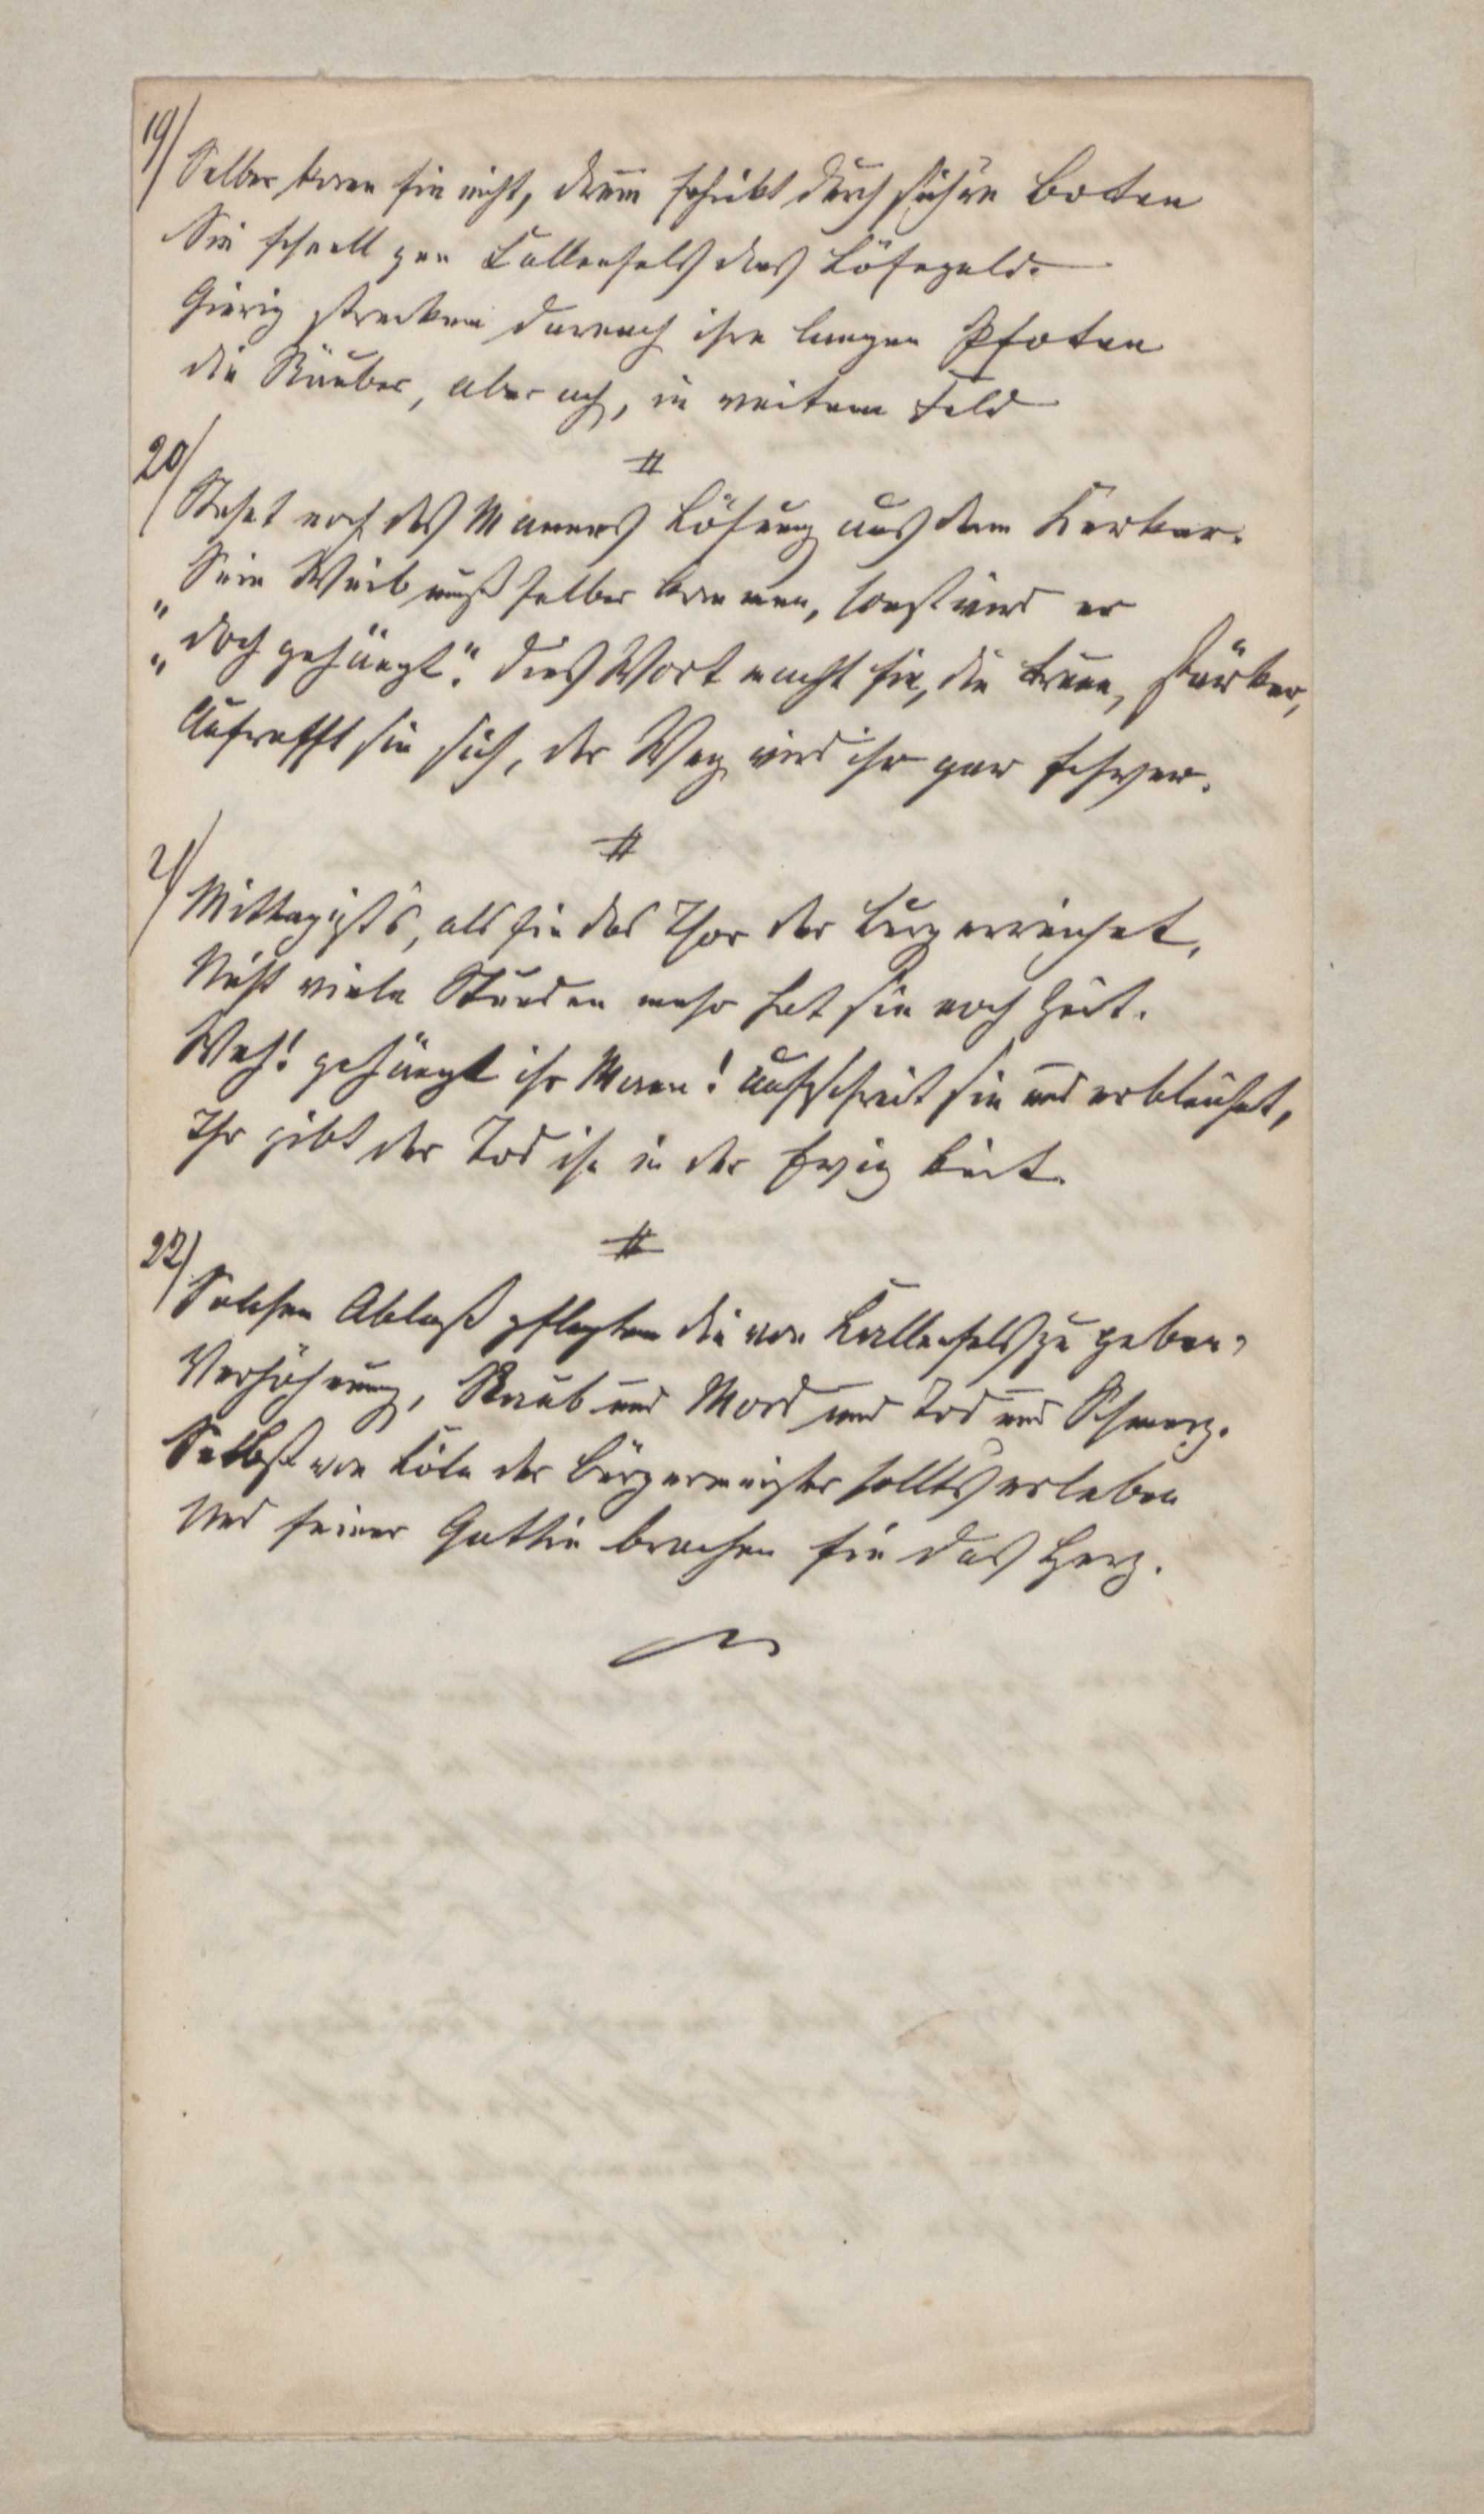 19/
Selber kann sie nicht, drum schickt durch sichre Boten
Sie schnell gen Kallenfels das Lösegeld.
Gierig strecken darnach ihre langen Pfoten
die Räuber, aber ach, in weitem Feld
#
20/
Stehet noch des Mannes Lösung aus dem Kerker.
„Sein Weib muß selber kommen, sonst wird er
„doch gehängt“. Dies Wort macht sie, die treue, stärker,
Aufrafft sie sich, der Weg wird ihr gar schwer.
#
21/
Mittag ist's, als sie das Thor der Burg erreichet,
Nicht viele Stunden mehr hat sie noch Zeit.
Weh! gehängt ihr Mann! Aufschreit sie und erbleichet,
Ihr gibt der Tod ihn in der Ewigkeit.
#
22/
Solchen Ablaß pflegten die von Kallenfels zu geben,
Verhöhnung, Raub und Mord und Tod und Schmerz.
Selbst von Köln der Bürgermeister sollts erleben
Und seiner Gattin brachen sie das Herz.